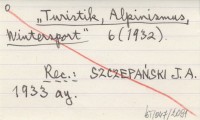 „Turistik, Alpinismus,
Wintersport" 6 (1932).
Rec.: SZCZEPAŃSKI J.A.
1933 ay.